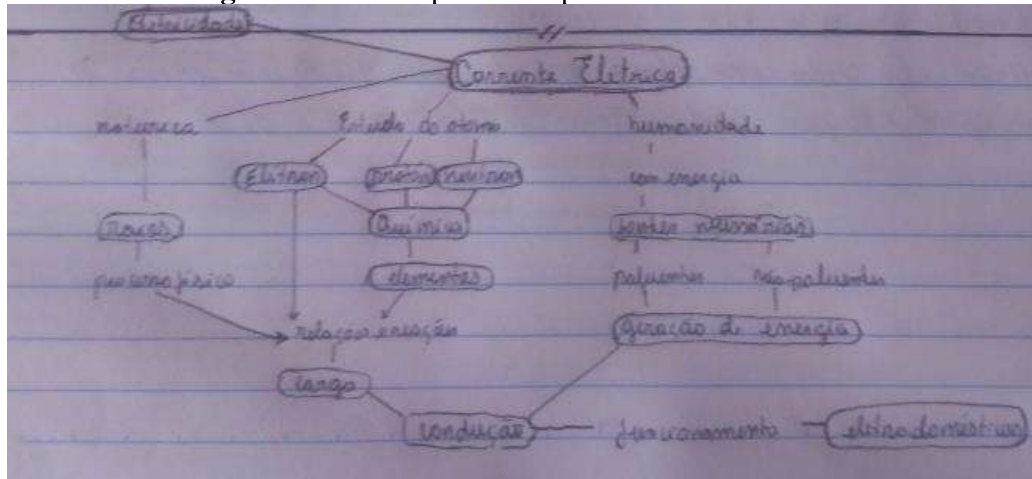 Eletricidade
Corrente Elétrica
natureza Estudo do átomo humanidade
Elétron próton neutron com energia
raios Química fontes necessárias
processo físico elementos poluentes não-poluentes
relação interação geração de energia
carga
condução funcionamento eletrodomésticos